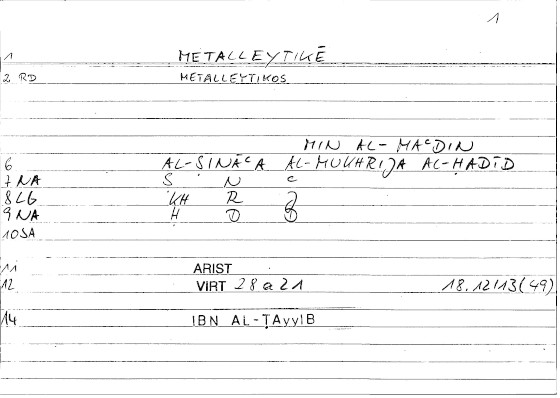 1
1 METALLEYTIKĒ
2 RD METALLEYTIKOS
MIN AL-MAᶜDIN
6 AL-ṢINĀᶜA AL-MUKHRIJA AL-ḤADĪD
7 NA Ṣ N ᶜ
8 LG KH R J
9 NA Ḥ D D
10 SA
11 ARIST
12 VIRT 28 a 21 18.12/13 (49)
14 IBN AL-ṬAyyIB